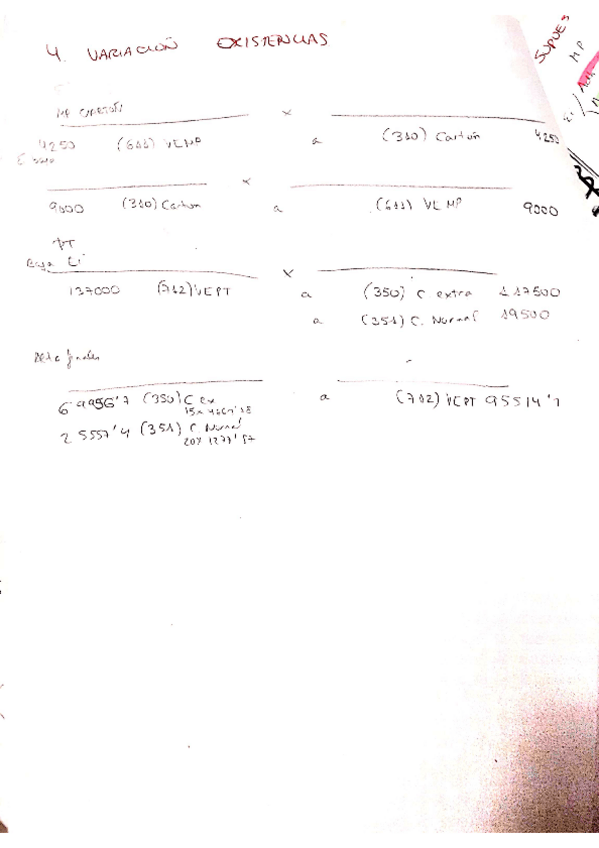 4. VARIACIÓN EXISTENCIAS
SUPUES
MP
MP CARTÓN
x
4250 (611) VEMP a (310) Cartón 4250
x
9000 (310) Carton a (611) VE MP 9000
PT
Baja Ei
x
137000 (712) VEPT a (350) C. extra 117500
a (351) C. Normal 19500
69956'7 (350) C ex a (712) VEPT 95514'1
25557'4 (351) C. Normal